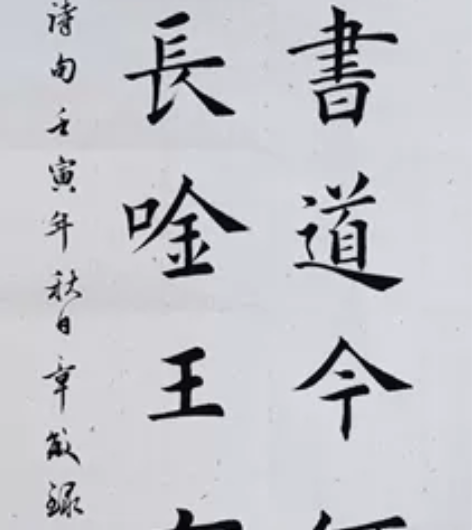 書道今
長唫王
詩句壬寅年秋日章敏録